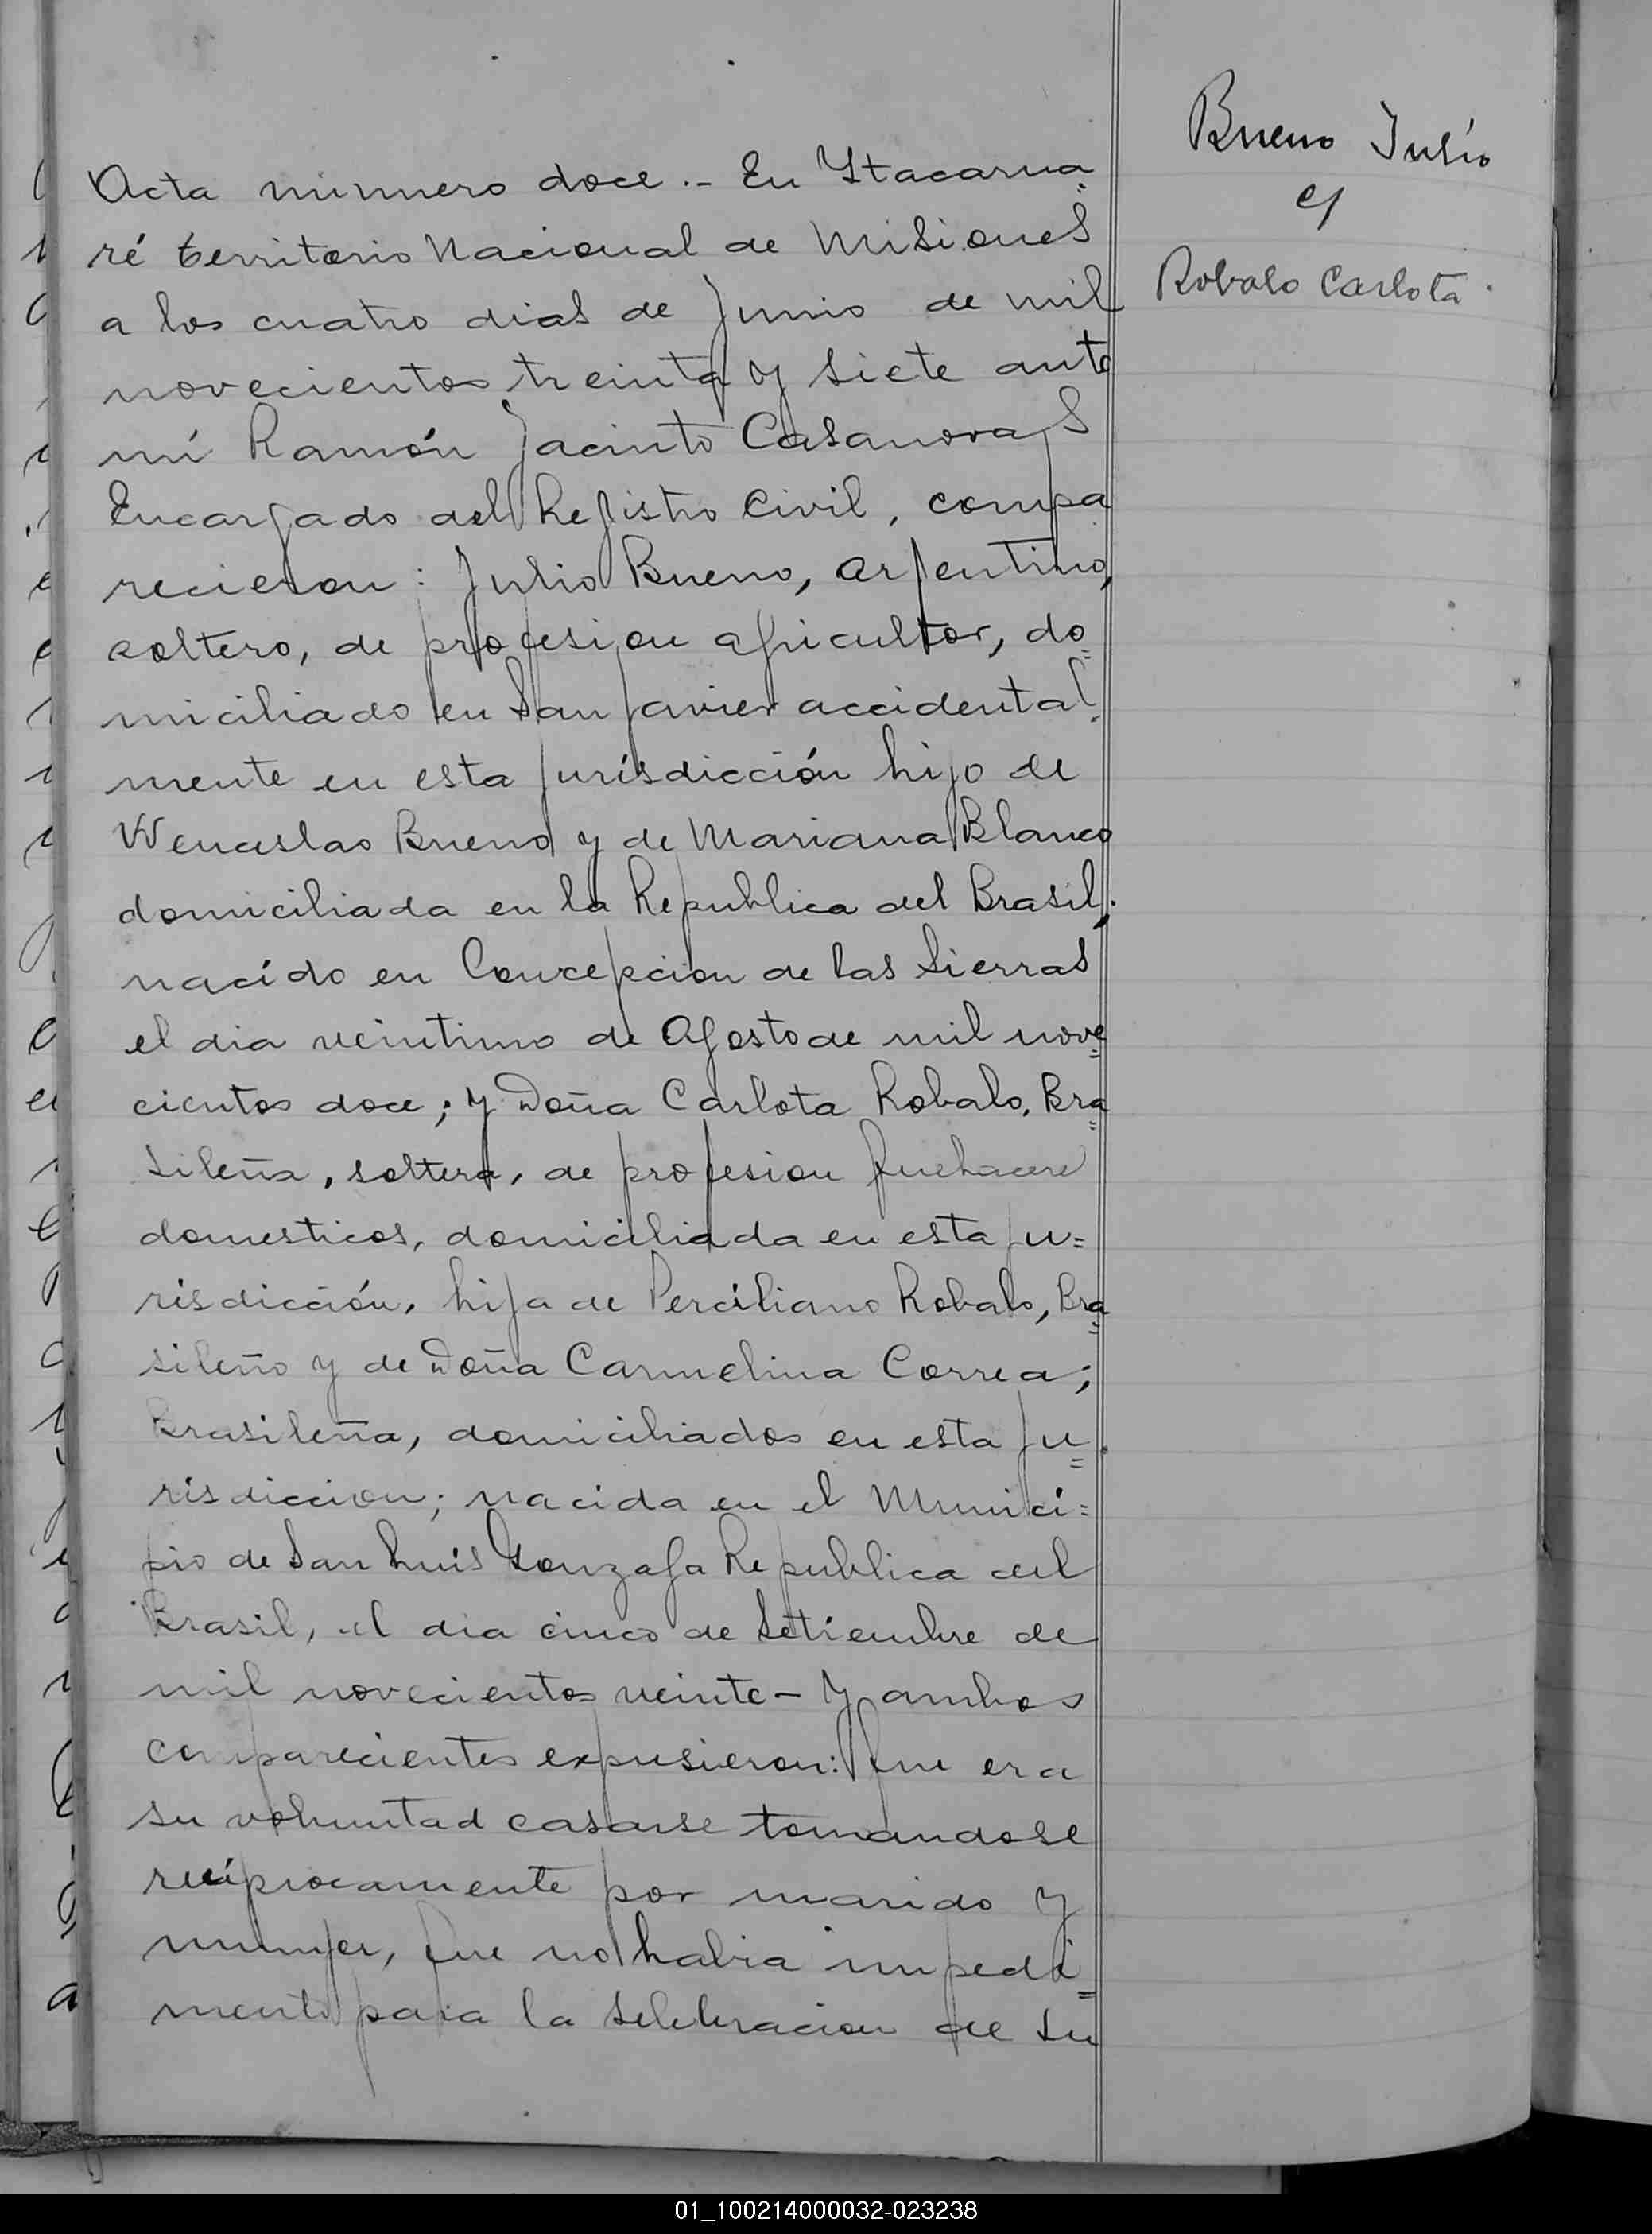 Acta número doce.- En Itacarua=
ré territorio Nacional de Misiones
a los cuatro dias de Junio de mil
novecientos treinta y siete ante
mi Ramón Jacinto Casanovas
Encargado del Registro Civil, compa
recieron: Julio Bueno, argentino,
soltero, de profesion agricultor, do=
miciliado en San Javier accidental=
mente en esta jurisdicción hijo de
Wenceslao Bueno y de Mariana Blanco
domiciliada en la Republica del Brasil;
nacido en Concepcion de las Sierras
el dia veintiuno de Agosto de mil nove=
cientos doce; y Doña Carlota Robalo, Bra=
sileña, soltera, de profesion quehacere
domesticos, domiciliada en esta ju=
risdicción, hija de Perciliano Robalo, Bra=
sileño y de Doña Carmelina Correa;
Brasileña, domiciliados en esta ju=
risdiccion; nacida en el Munici=
pio de San Luis Gonzaga Republica del
Brasil, el dia cinco de Setiembre de
mil novecientos veinte- Y ambos
comparecientes expusieron: Que era
su voluntad casarse tomandose
reciprocamente por marido y
mujer, que no habia impedi=
mento para la selebracion de su
Bueno Julio
c/
Robalo Carlota
01_100214000032-023238